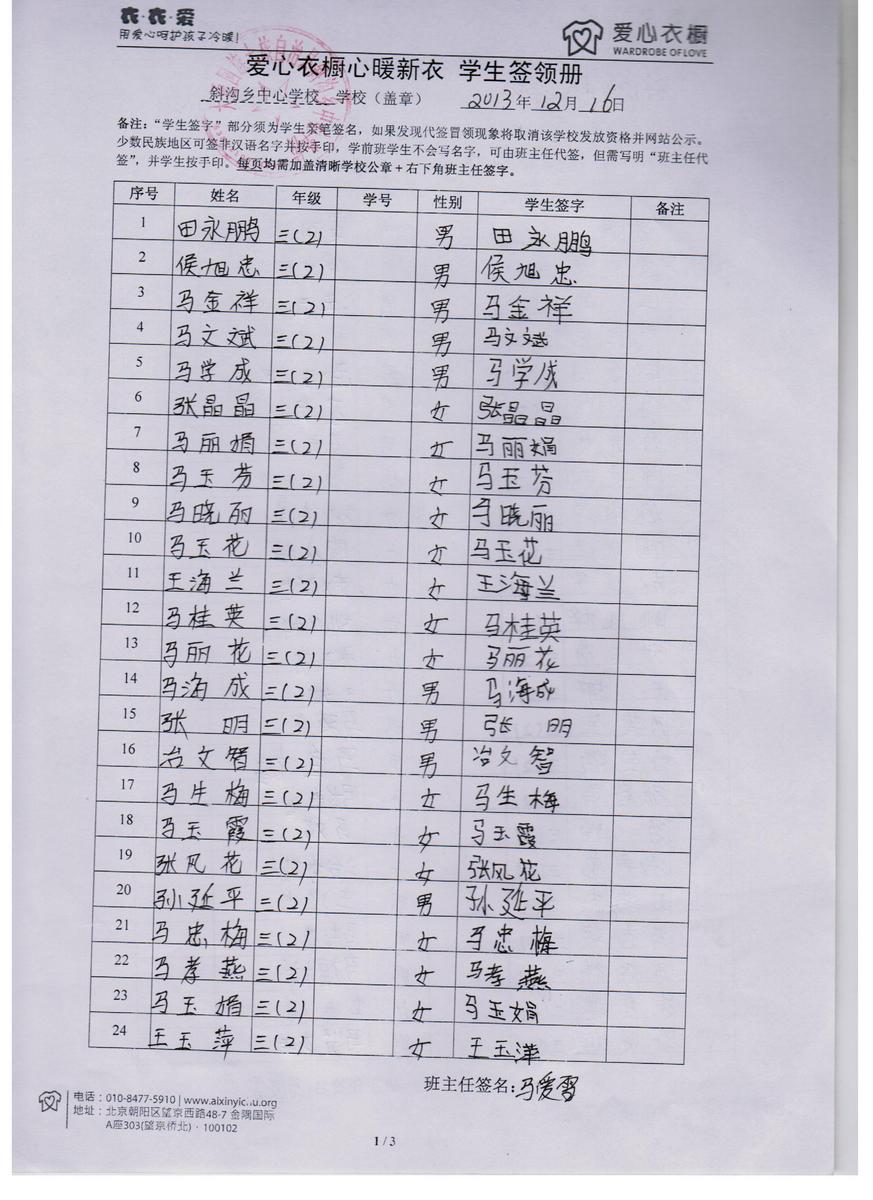 衣·衣·爱
用爱心呵护孩子冷暖！
爱心衣橱
WARDROBE OF LOVE
爱心衣橱心暖新衣 学生签领册
斜沟乡中心学校 学校（盖章） 2013年12月16日
备注：“学生签字”部分须为学生亲笔签名，如果发现代签冒领现象将取消该学校发放资格并网站公示。
少数民族地区可签非汉语名字并按手印，学前班学生不会写名字，可由班主任代签，但需写明“班主任代
签”，并学生按手印。每页均需加盖清晰学校公章+右下角班主任签字。
序号 姓名 年级 学号 性别 学生签字 备注
1 田永鹏 三(2) 男 田永鹏
2 侯旭忠 三(2) 男 侯旭忠
3 马金祥 三(2) 男 马金祥
4 马文斌 三(2) 男 马文斌
5 马学成 三(2) 男 马学成
6 张晶晶 三(2) 女 张晶晶
7 马丽娟 三(2) 女 马丽娟
8 马玉芬 三(2) 女 马玉芬
9 马晓丽 三(2) 女 马晓丽
10 马玉花 三(2) 女 马玉花
11 王海兰 三(2) 女 王海兰
12 马桂英 三(2) 女 马桂英
13 马丽花 三(2) 女 马丽花
14 马海成 三(2) 男 马海成
15 张明 三(2) 男 张明
16 冶文智 三(2) 男 冶文智
17 马生梅 三(2) 女 马生梅
18 马玉霞 三(2) 女 马玉霞
19 张风花 三(2) 女 张风花
20 孙延平 三(2) 男 孙延平
21 马忠梅 三(2) 女 马忠梅
22 马孝燕 三(2) 女 马孝燕
23 马玉娟 三(2) 女 马玉娟
24 王玉萍 三(2) 女 王玉萍
班主任签名：马爱
电话：010-8477-5910 | www.aixinyic..u.org
地址：北京朝阳区望京西路48-7 金隅国际
A座303(望京侨北)·100102
1 / 3